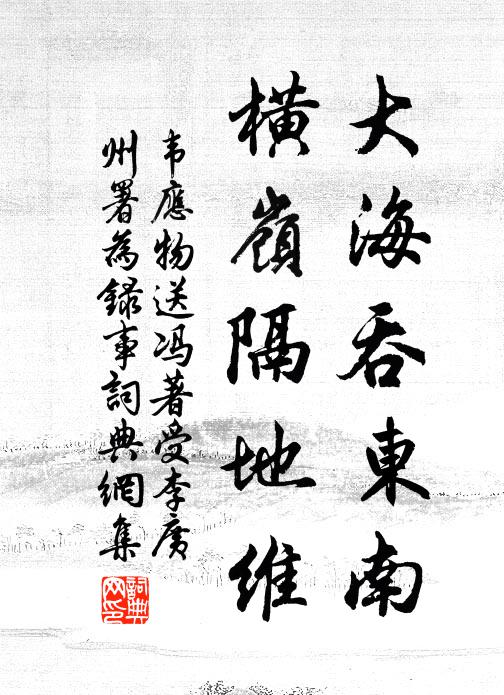 大海吞東南
橫嶺隔地維
韦應物送冯著受李廣
州署為錄事詞典網集
詞典网印